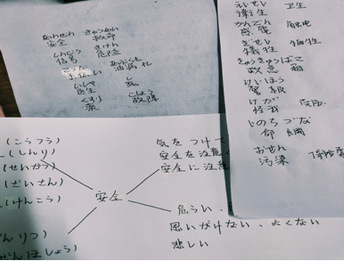 あんぜん きゅうめい
安全 救命
しんごう きけん
信号 危険
いしゃ
医生
くすり こしょう
薬 故障
えいせい 卫生
衛生
かんでん 触电
感電
ぎせい 牺牲
犠牲
きゅうきゅうばこ
救急箱
けいほう
警報
けが
怪我
いのちづな
命綱
おせん
汚染
(こうつう)
(しんり)
(せいかつ)
(だいさん)
(けんこう)
気をつけて
安全を注意
安全に注意
安全
危うい
思いがけない、よくない
悲しい